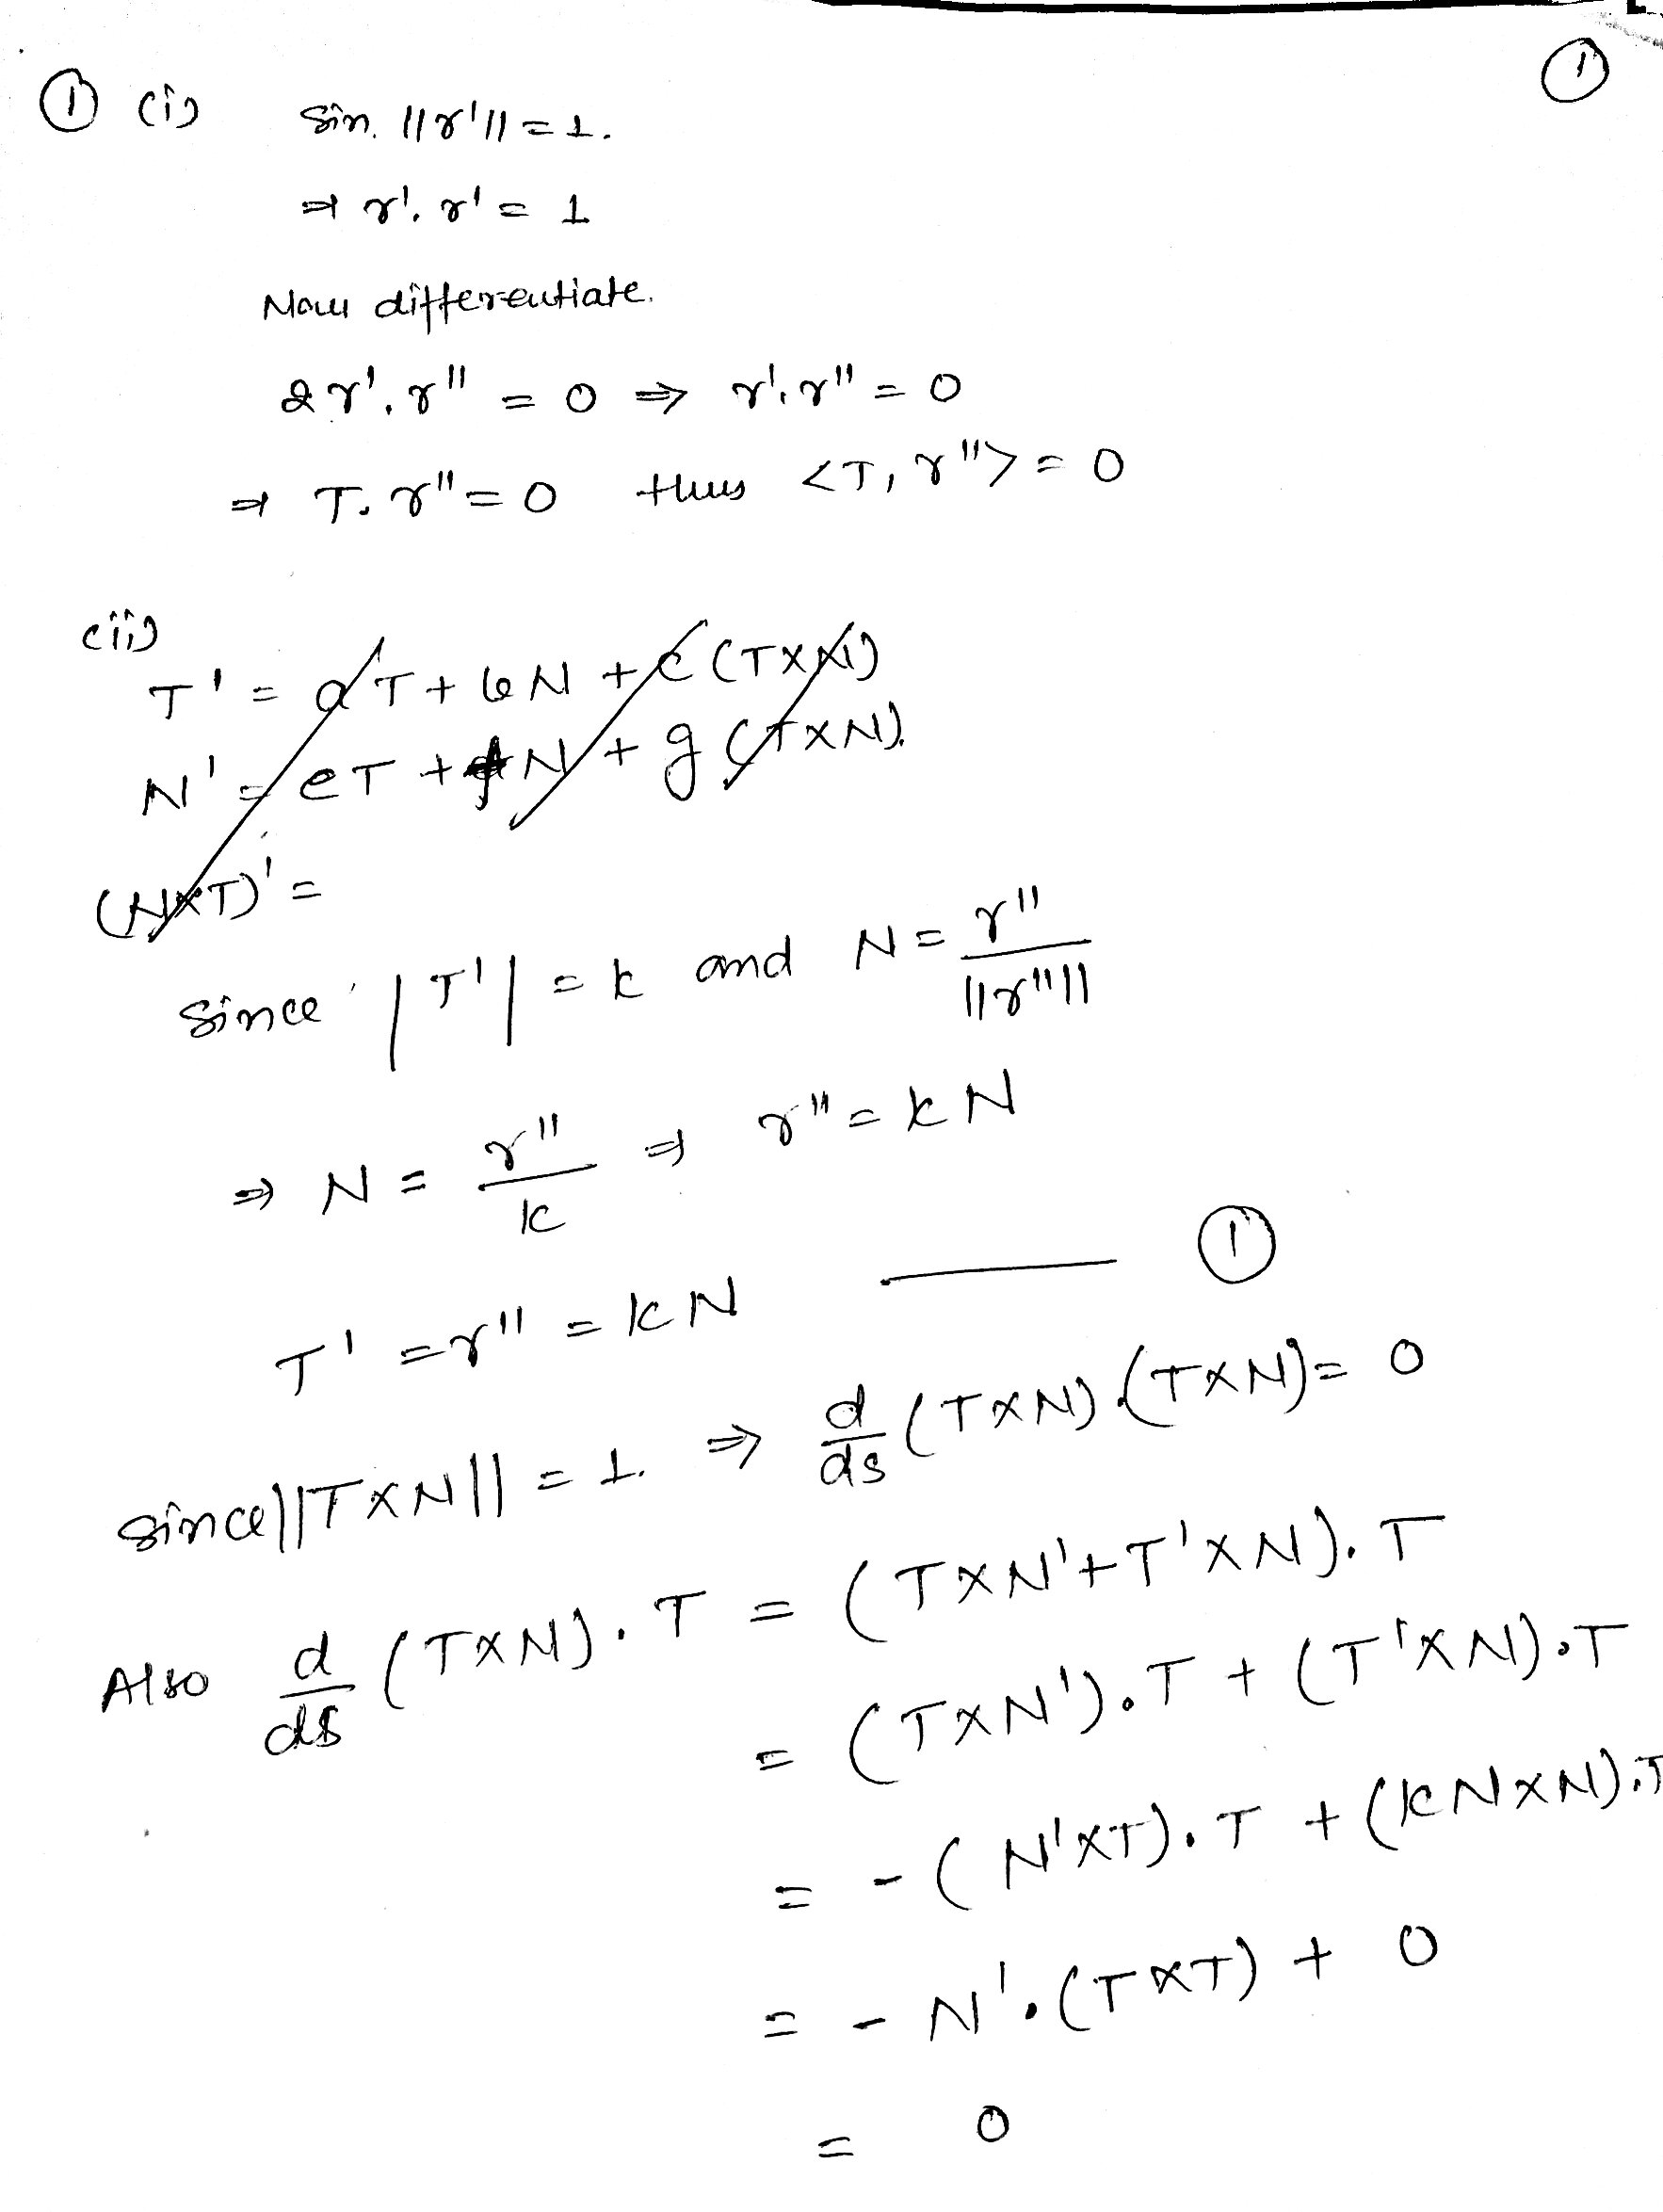 ①
① (i) Sin. ||γ'||=1.
⇒ γ'. γ' = 1
Now differentiate.
2γ'. γ'' = 0 ⇒ γ'. γ'' = 0
⇒ T. γ'' = 0 thus <T, γ''> = 0
(ii)
T' = aT + bN + c(T×N)
N' = eT + fN + g(T×N).
(N×T)' =
Since |T'| = k and N = γ''/||γ''||
⇒ N = γ''/k ⇒ γ'' = kN
T' = γ'' = kN ——— ①
Since ||T×N|| = 1. ⇒ d/ds (T×N).(T×N) = 0
Also d/ds (T×N). T = (T×N' + T'×N). T
= (T×N'). T + (T'×N). T
= - (N'×T). T + (kN×N). T
= - N'. (T×T) + 0
= 0